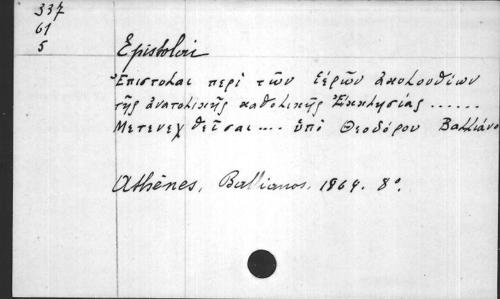 337
61
5
Epistolai
Ἐπιστολαι περὶ τῶν ἱερῶν ἀκολουθίων
τῆς ἀνατολικῆς καθολικῆς Ἐκκλησίας ......
Μετενεχθεῖσαι .... ὑπὸ Θεοδόρου Βαλλιάνο
Athènes, Ballianos, 1864. 8°.